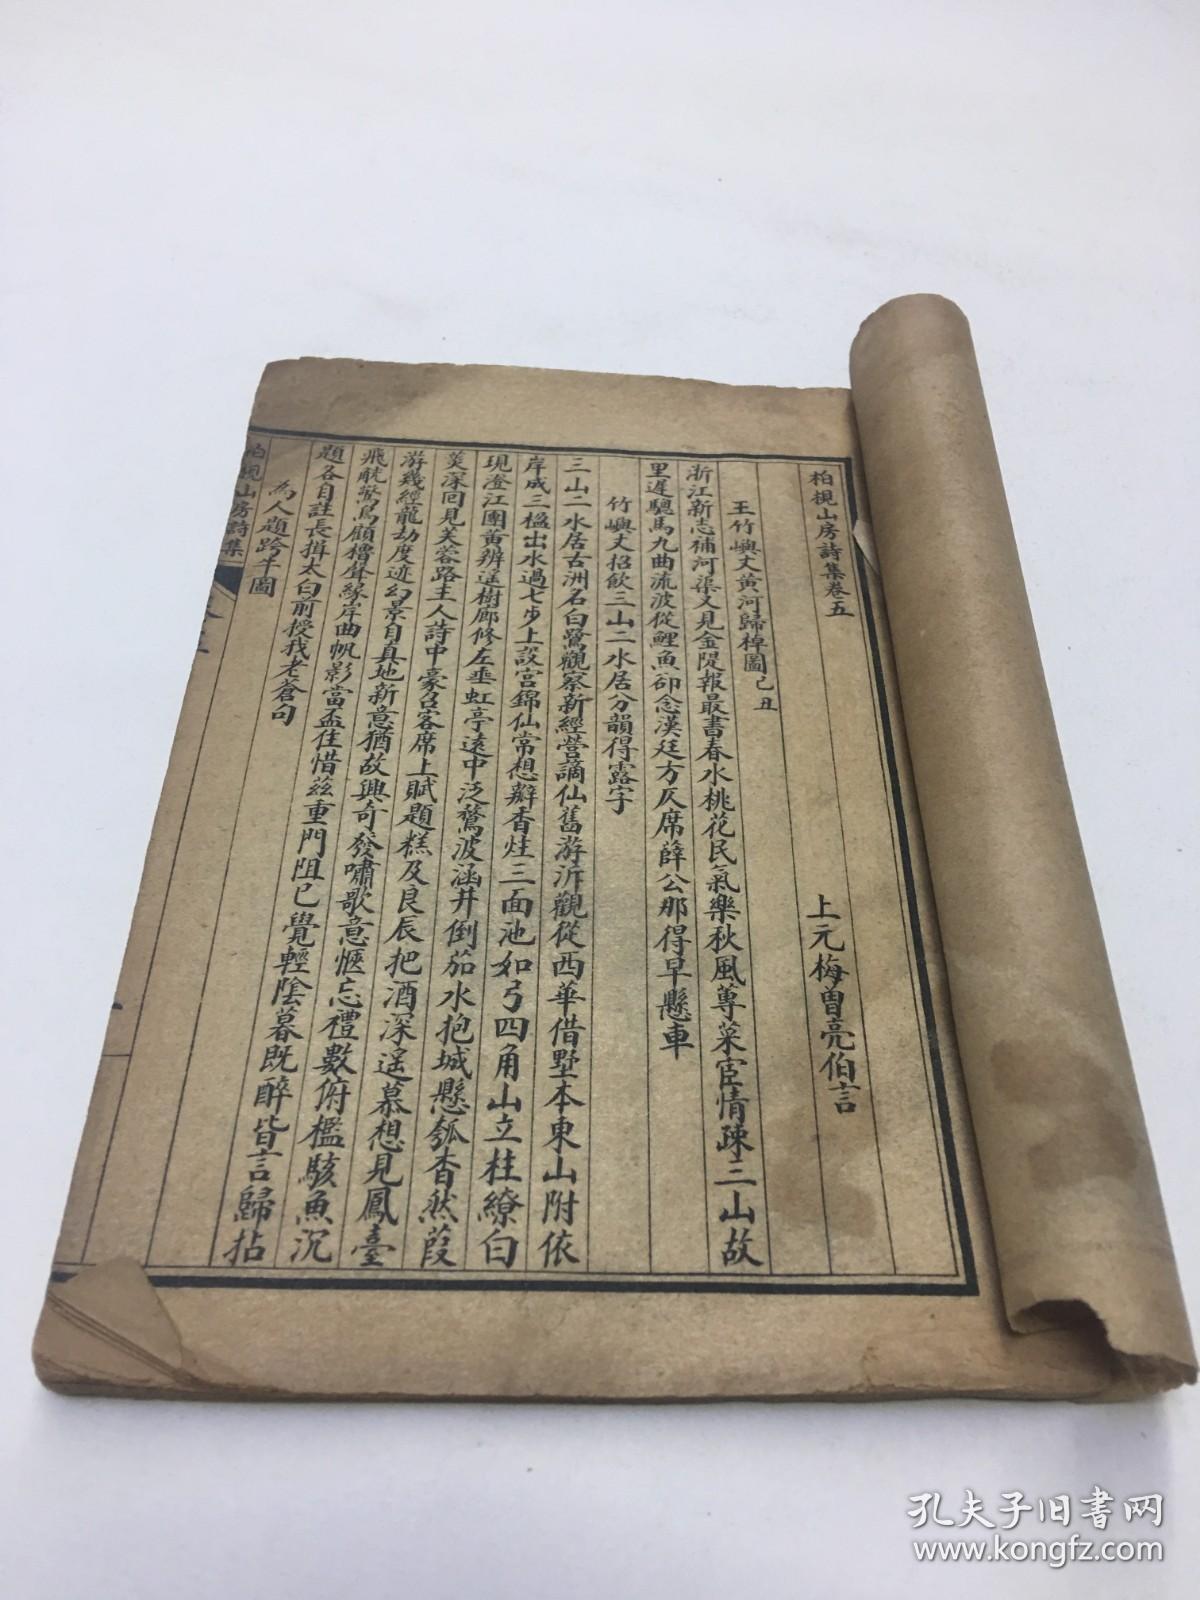 柏梘山房詩集卷五
上元梅曾亮伯言
王竹嶼丈黃河歸棹圖己丑
浙江新志補河渠又見金隄報最書春水桃花民氣樂秋風蓴菜宦情疎三山故
里遲驄馬九曲流波從鯉魚卻念漢廷方仄席薛公那得早懸車
竹嶼丈招飲三山二水居分韻得露字
三山二水居古洲名白鷺觀察新經營謫仙舊游泝觀從西華借墅本東山附依
岸成三楹出水過七步上設宮錦仙常想辦香炷三面池如弓四角山立柱繚白
現澄江團黃辨遙樹廊修左垂虹亭遠中泛鶩波涵井倒茄水抱城懸瓠杳然葭
菼深回見芙蓉路主人詩中豪召客席上賦題糕及良辰把酒深遙慕想見鳳臺
游幾經龍劫度迹幻景自真地新意猶故興奇發嘯歌意愜忘禮數俯檻駭魚沉
飛觥驚鳥顧櫓聲緣岸曲帆影當盃住惜茲重門阻已覺輕陰暮既醉皆言歸拈
題各自註長揖太白前授我老蒼句
為人題跨牛圖
柏梘山房詩集
孔夫子旧书网
www.kongfz.com